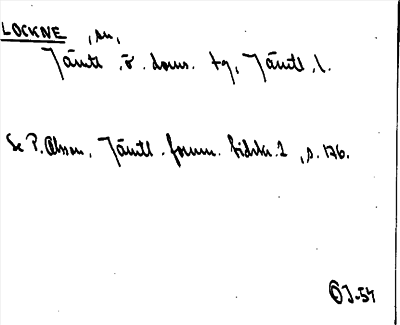 LOCKNE, sn,
Jämtl. ö. doms. tg, Jämtl. l.
Se P. Olsson, Jämtl. fornm. bidrkr. 2, s. 176.
ÖJ-54